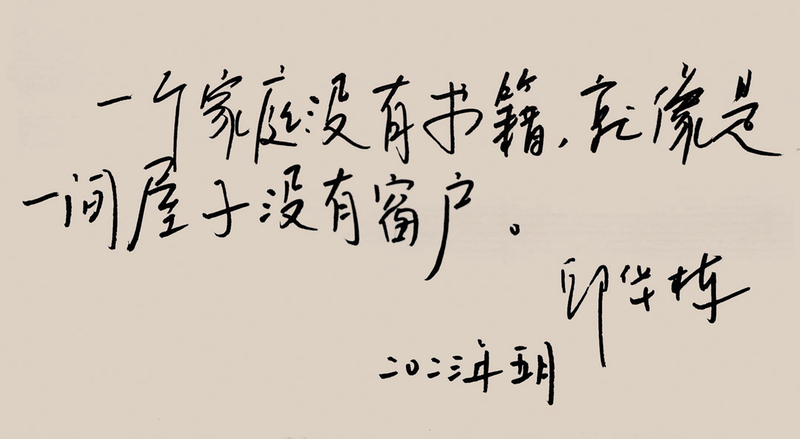 一个家庭没有书籍，就像是
一间屋子没有窗户。
邱华栋
二〇二三年五月